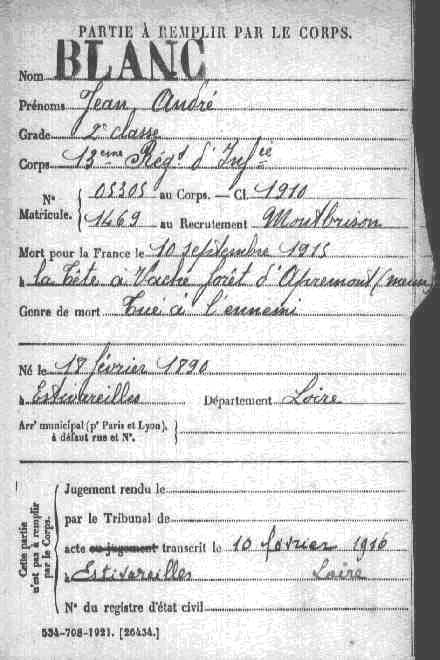 PARTIE À REMPLIR PAR LE CORPS.
Nom BLANC
Prénoms Jean, André
Grade 2e classe
Corps 13eme Régt d'Infie
No 05305 au Corps. — Cl. 1910
Matricule. 1469 au Recrutement Montbrison
Mort pour la France le 10 septembre 1915
à la Tête à Vache forêt d'Apremont (meuse)
Genre de mort Tué à l'ennemi
Né le 18 février 1890
à Estivareilles Département Loire
Arrt municipal (pr Paris et Lyon),
à défaut rue et No.
Jugement rendu le
par le Tribunal de
acte ou jugement transcrit le 10 février 1916
à Estivareilles Loire
No du registre d'état civil
Cette partie
n'est pas à remplir
par le Corps.
534-708-1921. [26434.]